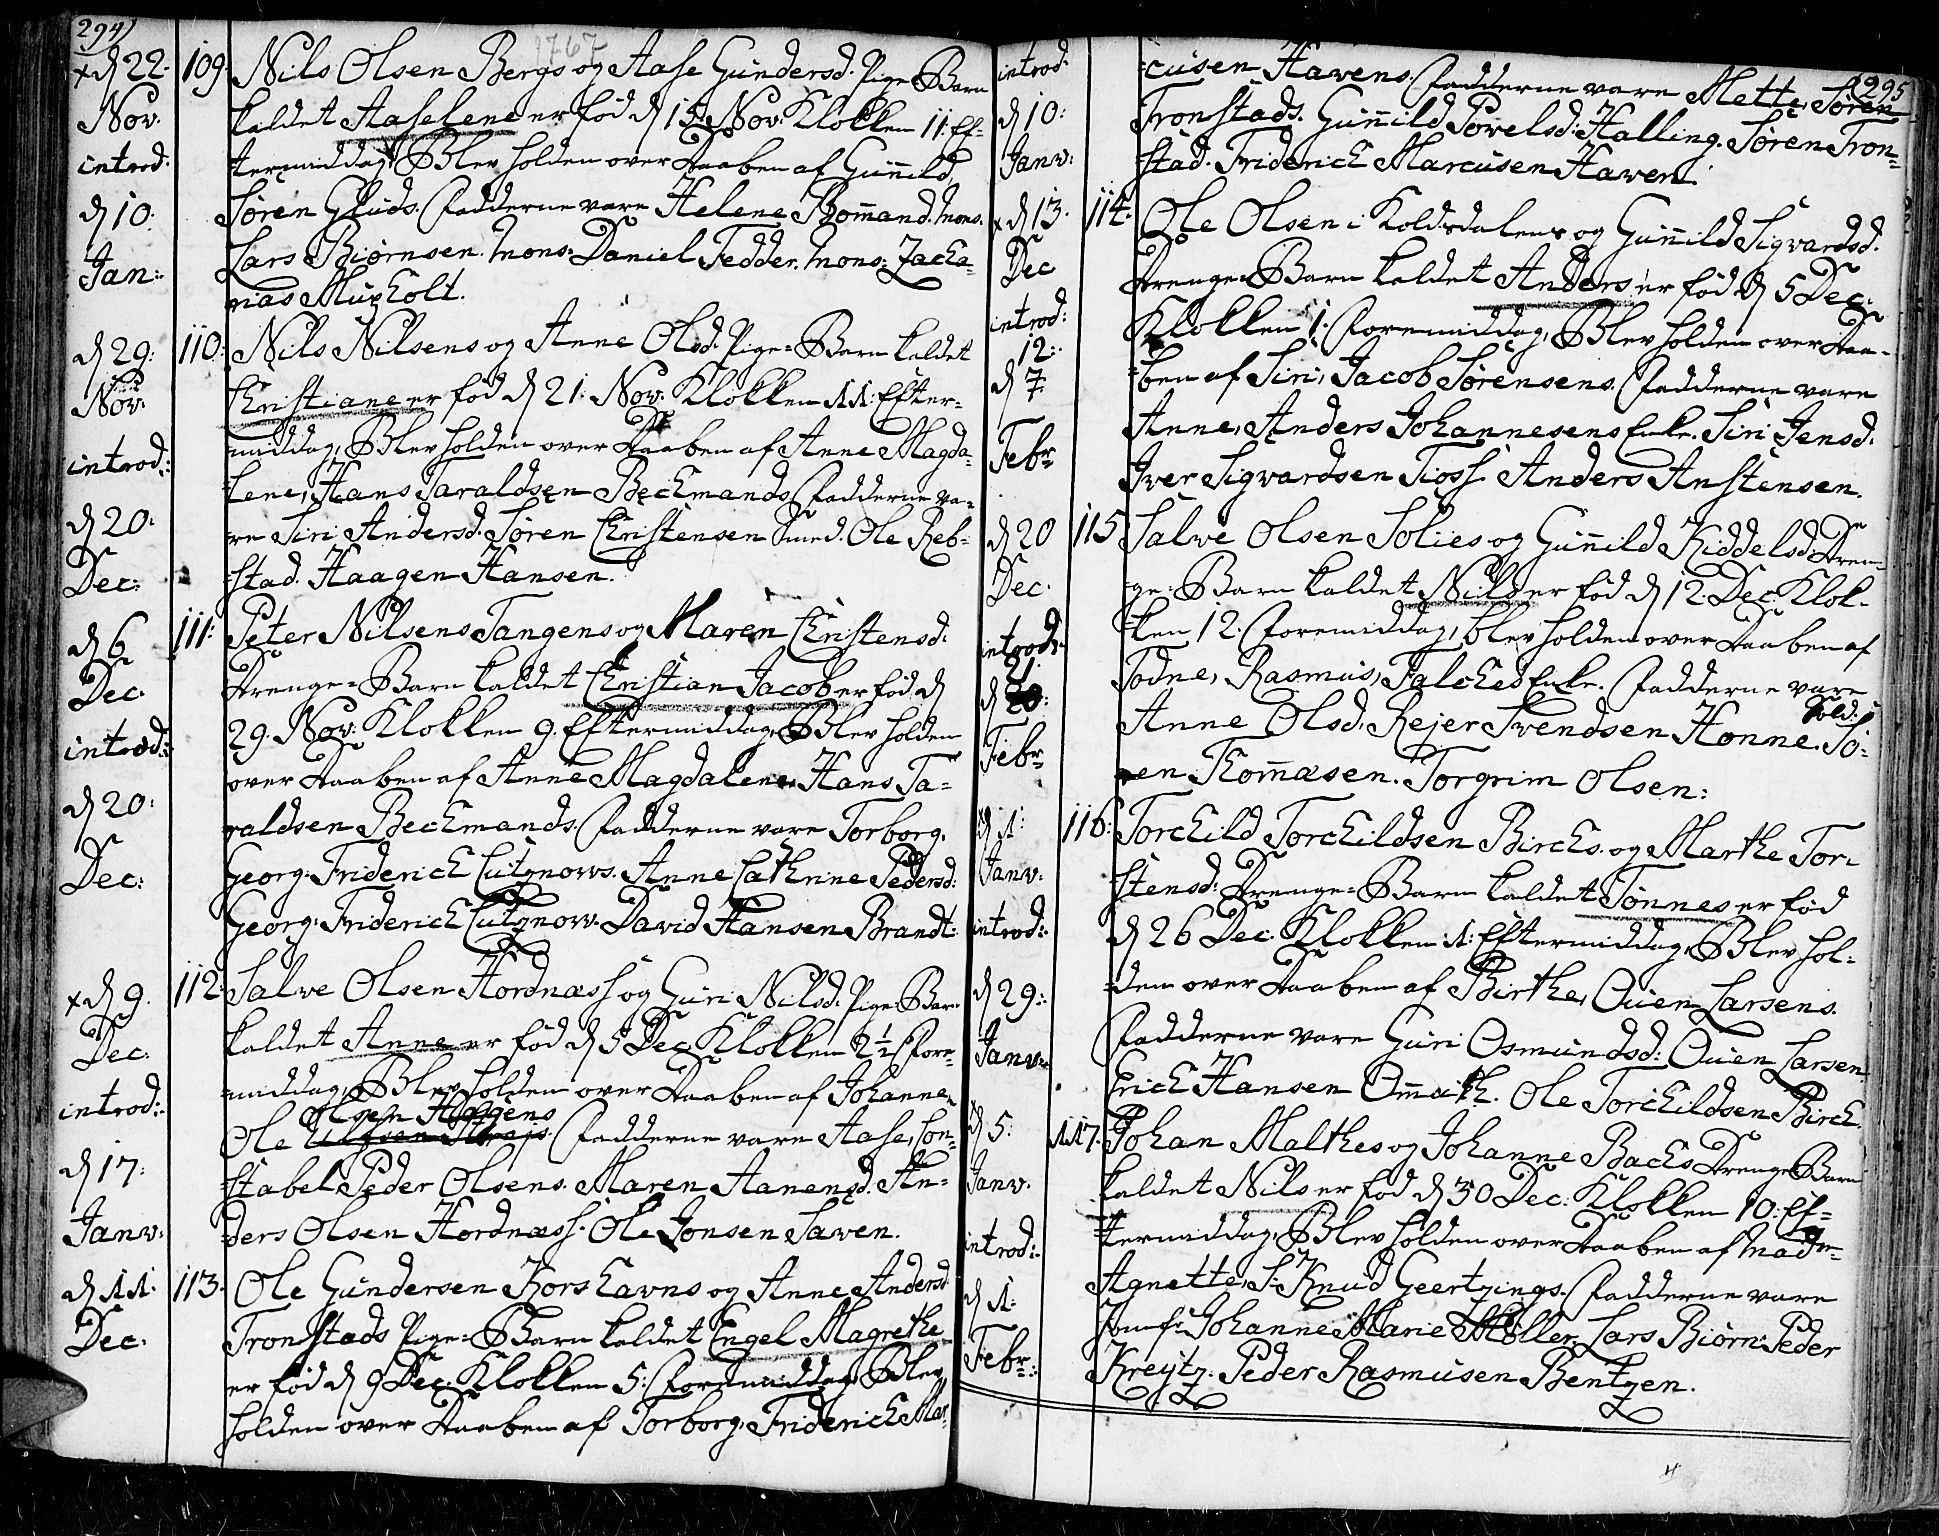 294)
1767
x d 22:
Nov.
introd:
d 10:
Jan:
109. Nils Olsen Bergs og Aase Gundersd. Pige-Barn
kaldet Aaselene er fød d 15 Nov. Klokken 11. Ef-
termiddag, Blev holden over Daaben af Gunild
Søren Gluds. Fadderne vare Helene Bomand. Mons.
Lars Biørnsen. Mons: Daniel Fedder. Mons: Zacha-
rias Mus­holt.
d 29:
Nov.
introd:
d 20:
Dec:
110. Nils Nilsens og Anne Olsd. Pige-Barn kaldet
Christiane er fød d 21. Nov. Klokken 11: Efter-
middag, Blev holden over Daaben af Anne Magda-
lene, Hans Taraldsen Beckmands. Fadderne va-
re Siri Andersd. Søren Christensen Smed. Ole Reb-
stad. Haagen Hansen.
d 6
Dec.
introd:
d 20:
Dec:
111: Peter Nilsens Tangens og Maren Christensd.
Drenge-Barn kaldet Christian Jacob er fød d
29. Nov. Klokken 9. Eftermiddag, Blev holden
over Daaben af Anne Magdalene, Hans Ta-
raldsen Beckmands. Fadderne vare Torborg,
Georg Friderich Lützows. Anne Cathrine Pedersd:
Georg Friderich Lützow. David Hansen Brandt:
x d 9.
Dec:
introd:
d 17:
Janv:
112. Salve Olsen Hordnæss og Guri Nilsd. Pige-Barn
kaldet Anne er fød d 5 Dec. Klokken 2½ For-
middag, Blev holden over Daaben af Johanne,
Olsen Haagens
Ole Fadderne vare Aase, Con-
stabel Peder Olsens. Maren Aanensd. An-
ders Olsen Hordnæss. Ole Jonsen Saven.
d 11:
Dec.
113. Ole Gundersen Korshavns og Anne Andersd
Tronstads Pige-Barn kaldet Engel Magrethe
er fød d 9 Dec. Klokken 5: Formiddag, Blev
holden over Daaben af Torborg, Friderich Mar-
295
introd.
d 10:
Janv:
cusen Havens. Fadderne vare Mette, Søren
Tronstads. Gunild Povelsd: Halling. Søren Tron-
stad. Friderich Marcusen Haven.
x d 13.
Dec
introd:
12:
d 7
Febr
114. Ole Olsen i Koldsdalens og Gunild Sigvardsd.
Drenge-Barn kaldet Anders er fød d 5 Dec.
Klokken 1. Formiddag, Blev holden over Daa-
ben af Siri, Jacob Sørensens. Fadderne vare
Anne, Anders Johannesens Enke. Siri Jensd.
Iver Sigvardsen Tioss. Anders Anstensen.
d 20
Dec.
introd:
21.
d
Febr
115 Salve Olsen Solies og Gunild Kiddelsd Dren-
ge-Barn kaldet Nils er fød d 12. Dec. Klok-
ken 12. Formiddag, blev holden over Daaben af
Todne, Rasmus, Falches Enke. Fadderne vare
Anne Olsd. Rejer Svendsen Honne. Sold: Sø-
ren Thomæsen. Torgrim Olsen:
d 1:
Janv.
introd:
d 29:
Janv:
116. Torchild Torchildsen Birchs og Marthe Tor-
stensd: Drenge-Barn kaldet Tønnes er fød
d 26 Dec. Klokken 1: Eftermiddag, Blev hol-
den over Daaben af Birthe, Ouen Larsens.
Fadderne vare Guri Osmundsd: Ouen Larsen
Erich Hansen Omdith. Ole Torchildsen Birch.
d 5:
Janv.
introd:
d 1:
Febr:
117. Johan Malthes og Johanne Bachs Drenge Barn
kaldet Nils er fød d 30 Dec: Klokken 10: Ef-
termiddag, Blev holden over Daaben af Mad:
Agnette, S: Knud Geertzings. Fadderne vare
Jomfr. Johanne Marie Møller. Lars Biørn. Peder
Kreytz. Peder Rasmusen Bentzen.